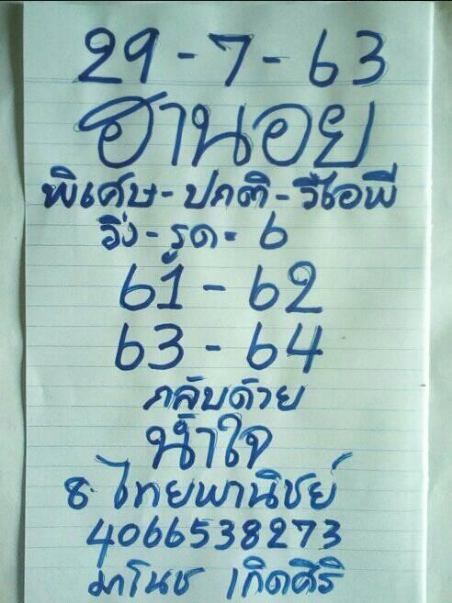 29-7-63
ฮานอย
พิเศษ-ปกติ-วีไอพี
วิ่ง-รูด=6
61-62
63-64
กลับด้วย
น้ำใจ
ธ.ไทยพานิชย์
4066538273
มาโนช เกิดศิริ